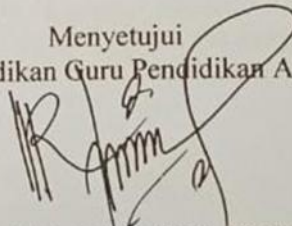 Menyetujui
dikan Guru Pendidikan A